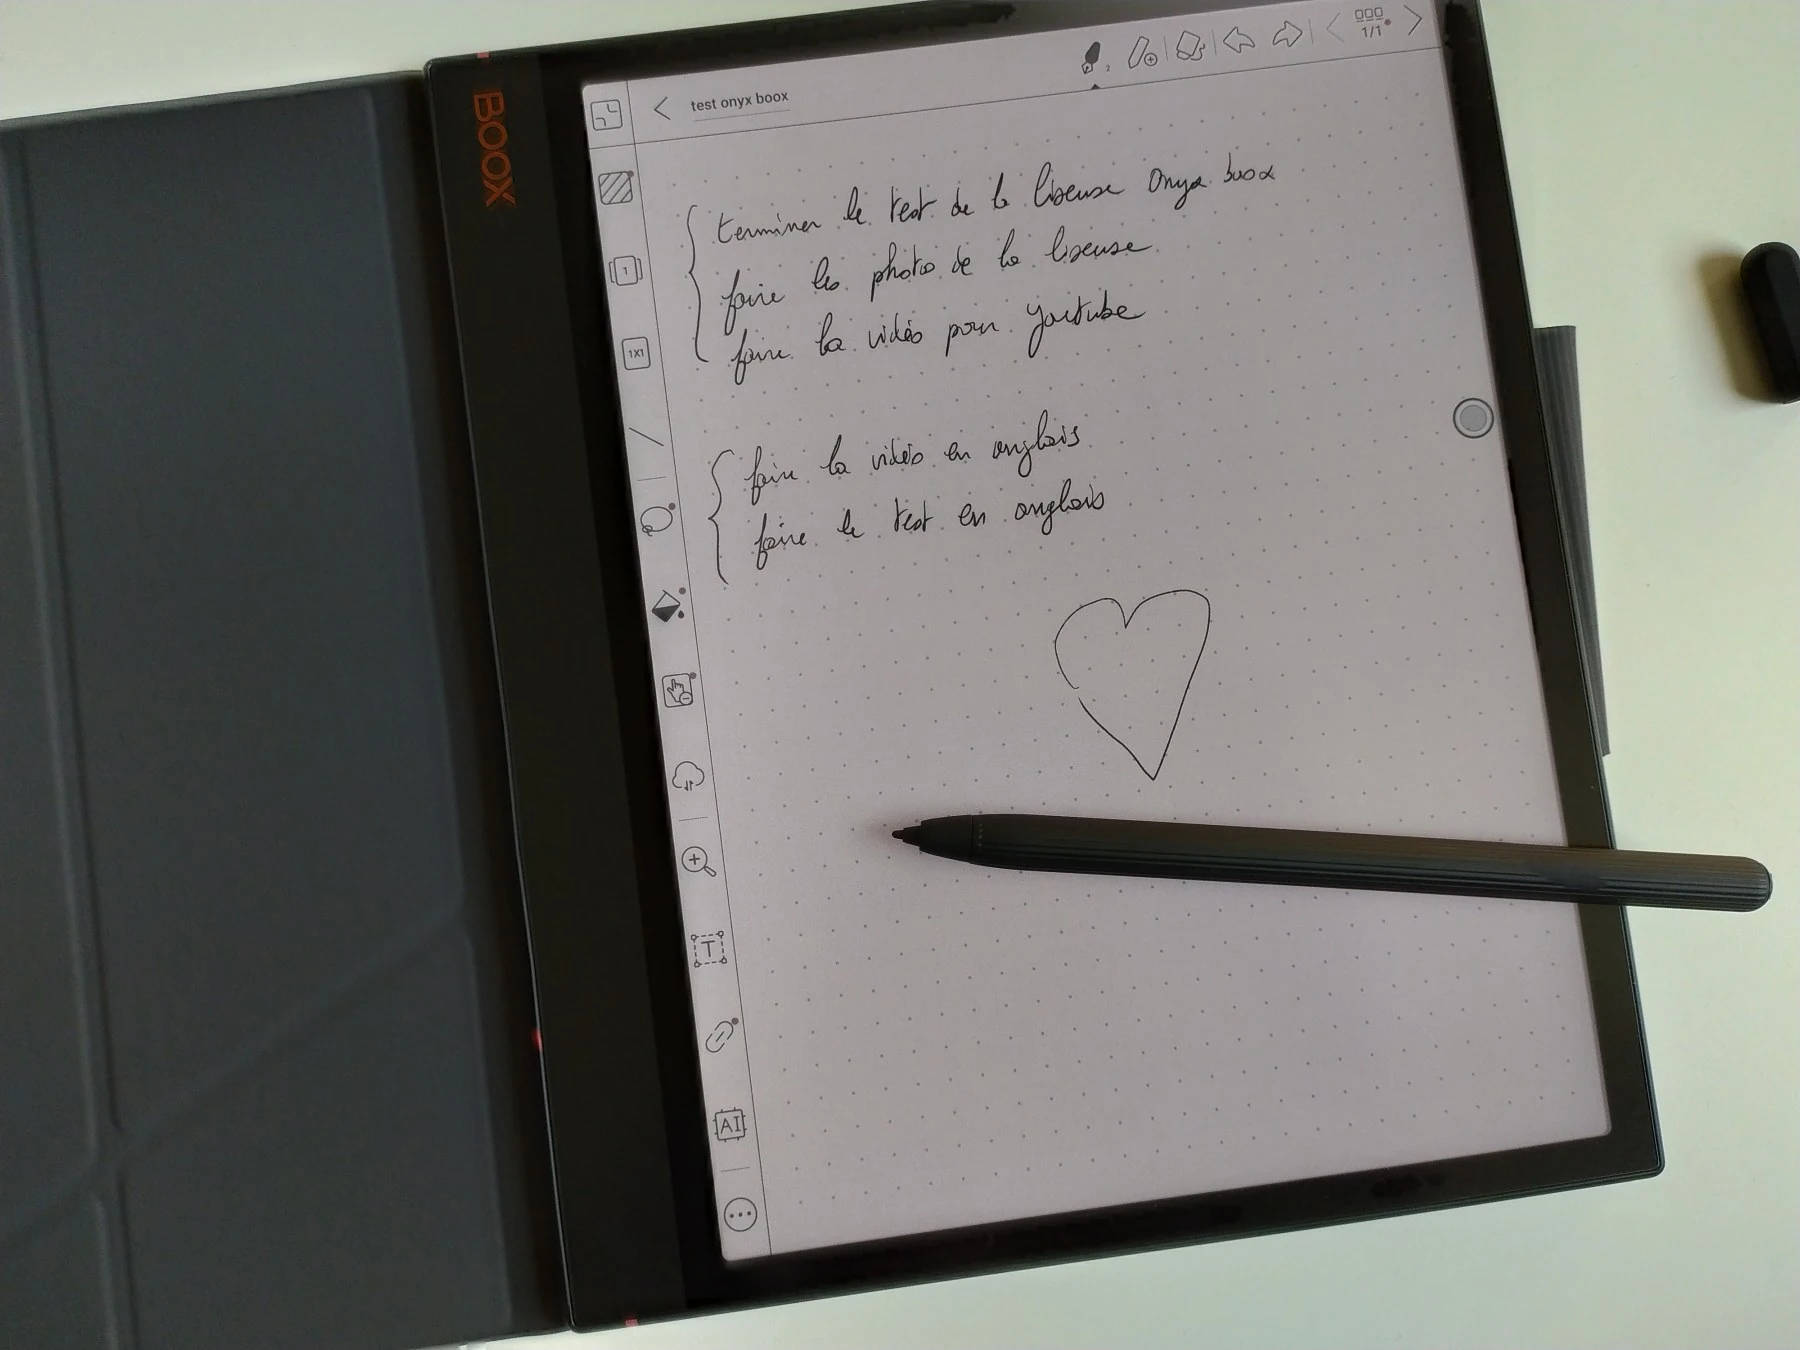 BOOX
test onyx boox
2
1/1
1
1X1
T
AI
terminer le test de la liseuse Onyx boox
faire les photos de la liseuse
faire la vidéo pour youtube
faire la vidéo en anglais
faire le test en anglais